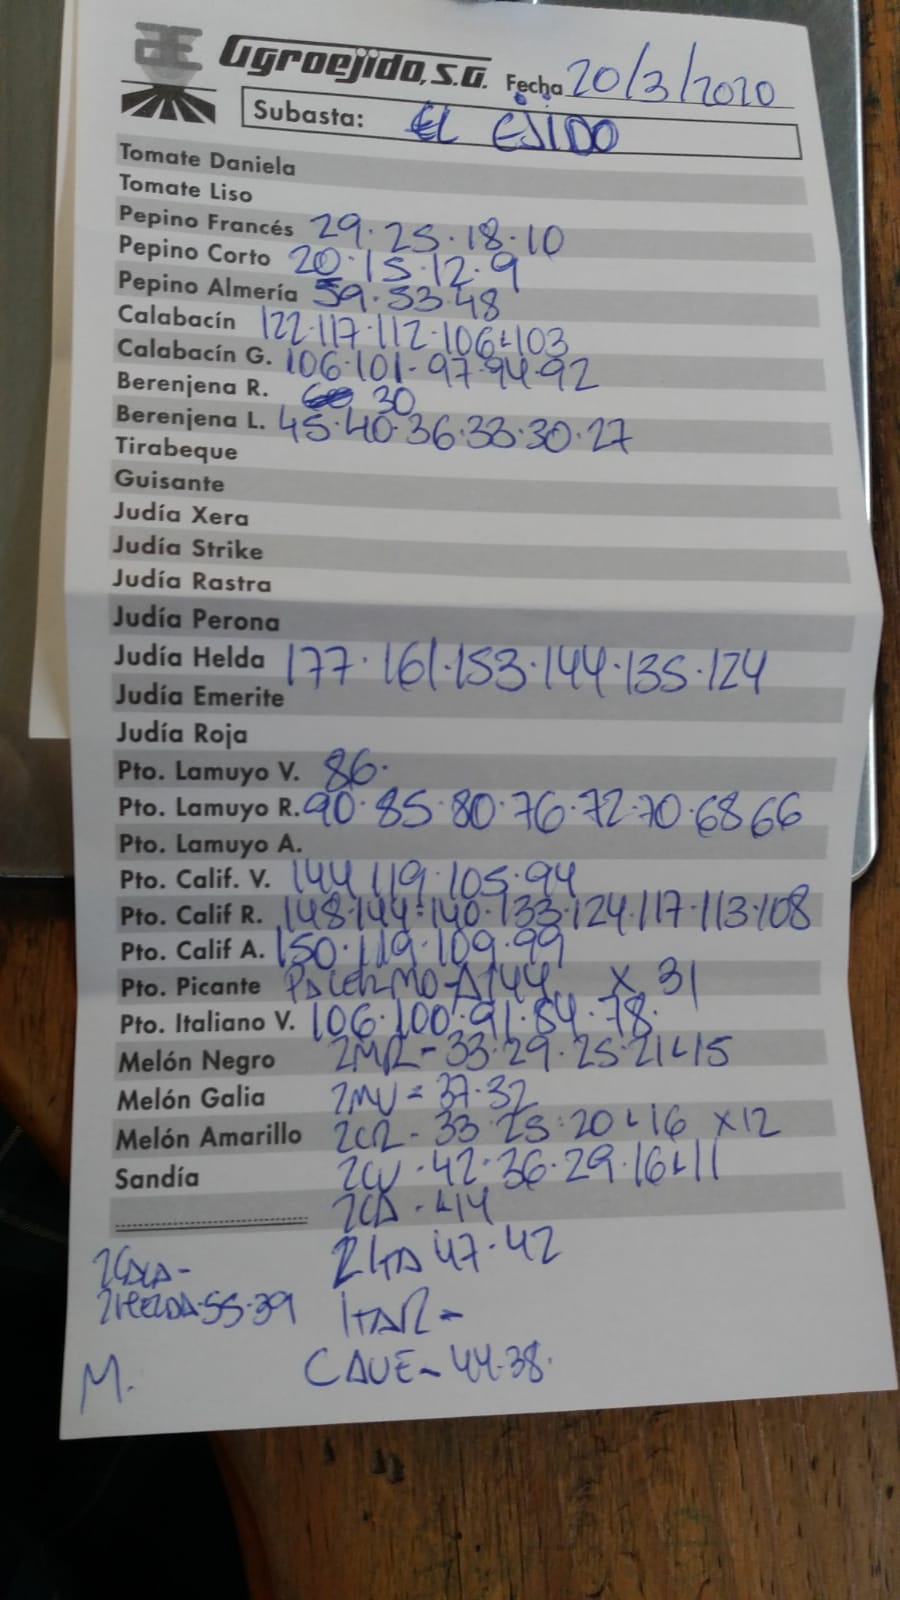 Agroejido, S.A. Fecha 20/3/2020
Subasta: EL EJIDO
Tomate Daniela
Tomate Liso
Pepino Francés 29·25·18·10
Pepino Corto 20·15·12·9
Pepino Almería 59·53·48
Calabacín 122·117·112·106L103
Calabacín G. 106·101·97·94·92
Berenjena R. 30
Berenjena L. 45·40·36·33·30·27
Tirabeque
Guisante
Judía Xera
Judía Strike
Judía Rastra
Judía Perona
Judía Helda 177·161·153·144·135·124
Judía Emerite
Judía Roja
Pto. Lamuyo V. 86·
Pto. Lamuyo R. 90·85·80·76·72·70·68 66
Pto. Lamuyo A.
Pto. Calif. V. 144 119·105·94
Pto. Calif R. 148·144·140·133·124·117·113·108
Pto. Calif A. 150·119·109·99
Pto. Picante PALERMO-A144 X 31
Pto. Italiano V. 106·100·91·84·78·
Melón Negro 2MR-33·29·25·21L15
Melón Galia 2MV=37·32
Melón Amarillo 2CR-33·25·20L16 X12
Sandía 2CV-42·36·29·16L11
2CA-L14
2ITA 47·42
2GALA-
2HELDA·55·39 ITAR-
M. CAVE-44·38·